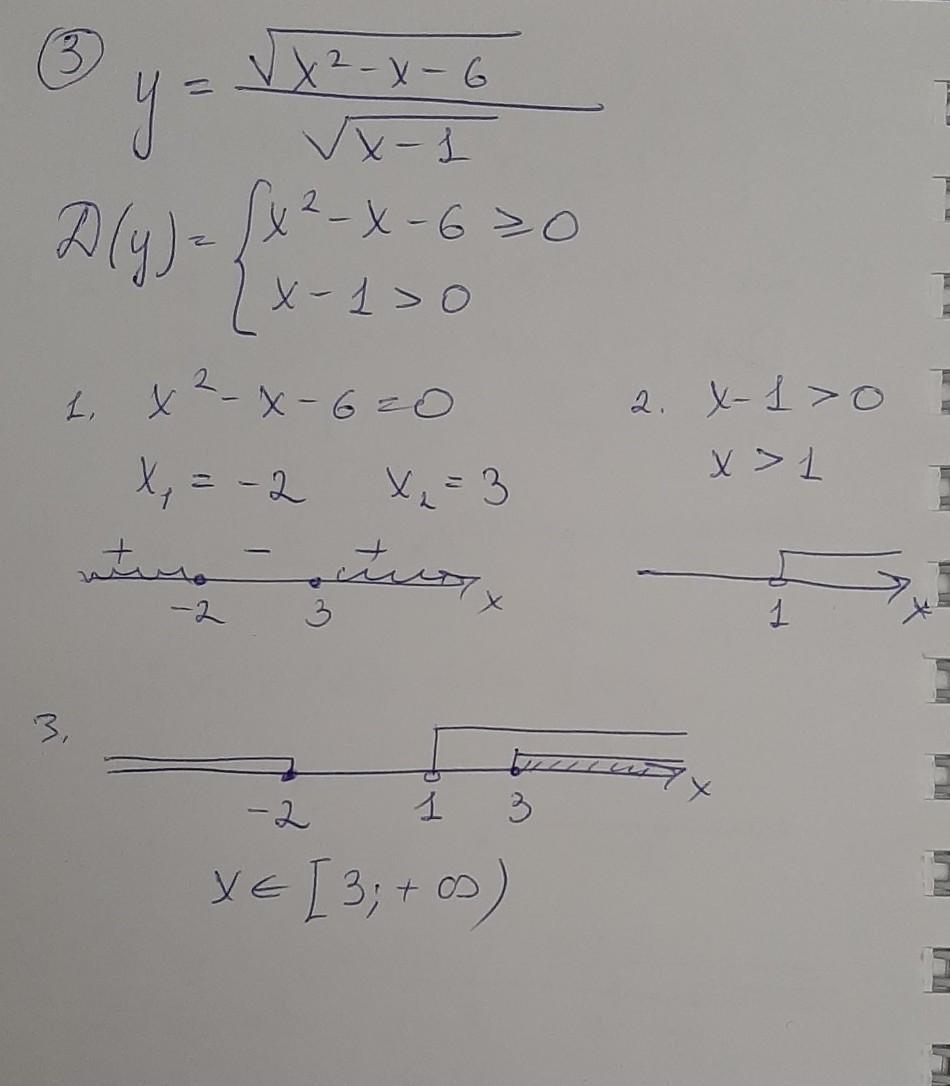 3
y = √(x² - x - 6) / √(x - 1)
D(y) = { x² - x - 6 ≥ 0
x - 1 > 0
1. x² - x - 6 = 0
x₁ = -2 x₂ = 3
+ - +
-2 3 x
2. x - 1 > 0
x > 1
1 x
3.
-2 1 3 x
x ∈ [3; +∞)